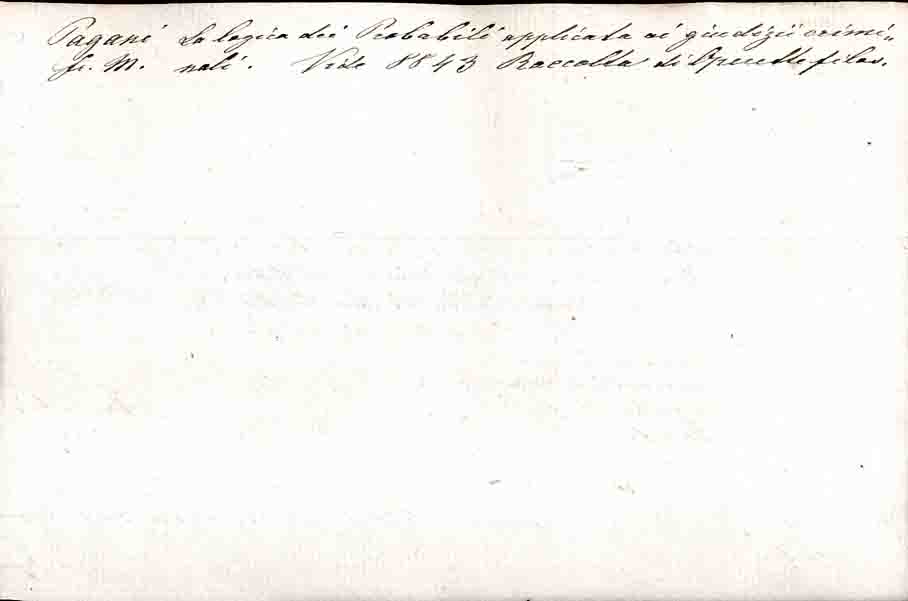 Pagani La logica dei Probabili applicata ai giudizii crimi„
fr. M. nali. Vide 8843 Raccolta di Opuscoli filos.